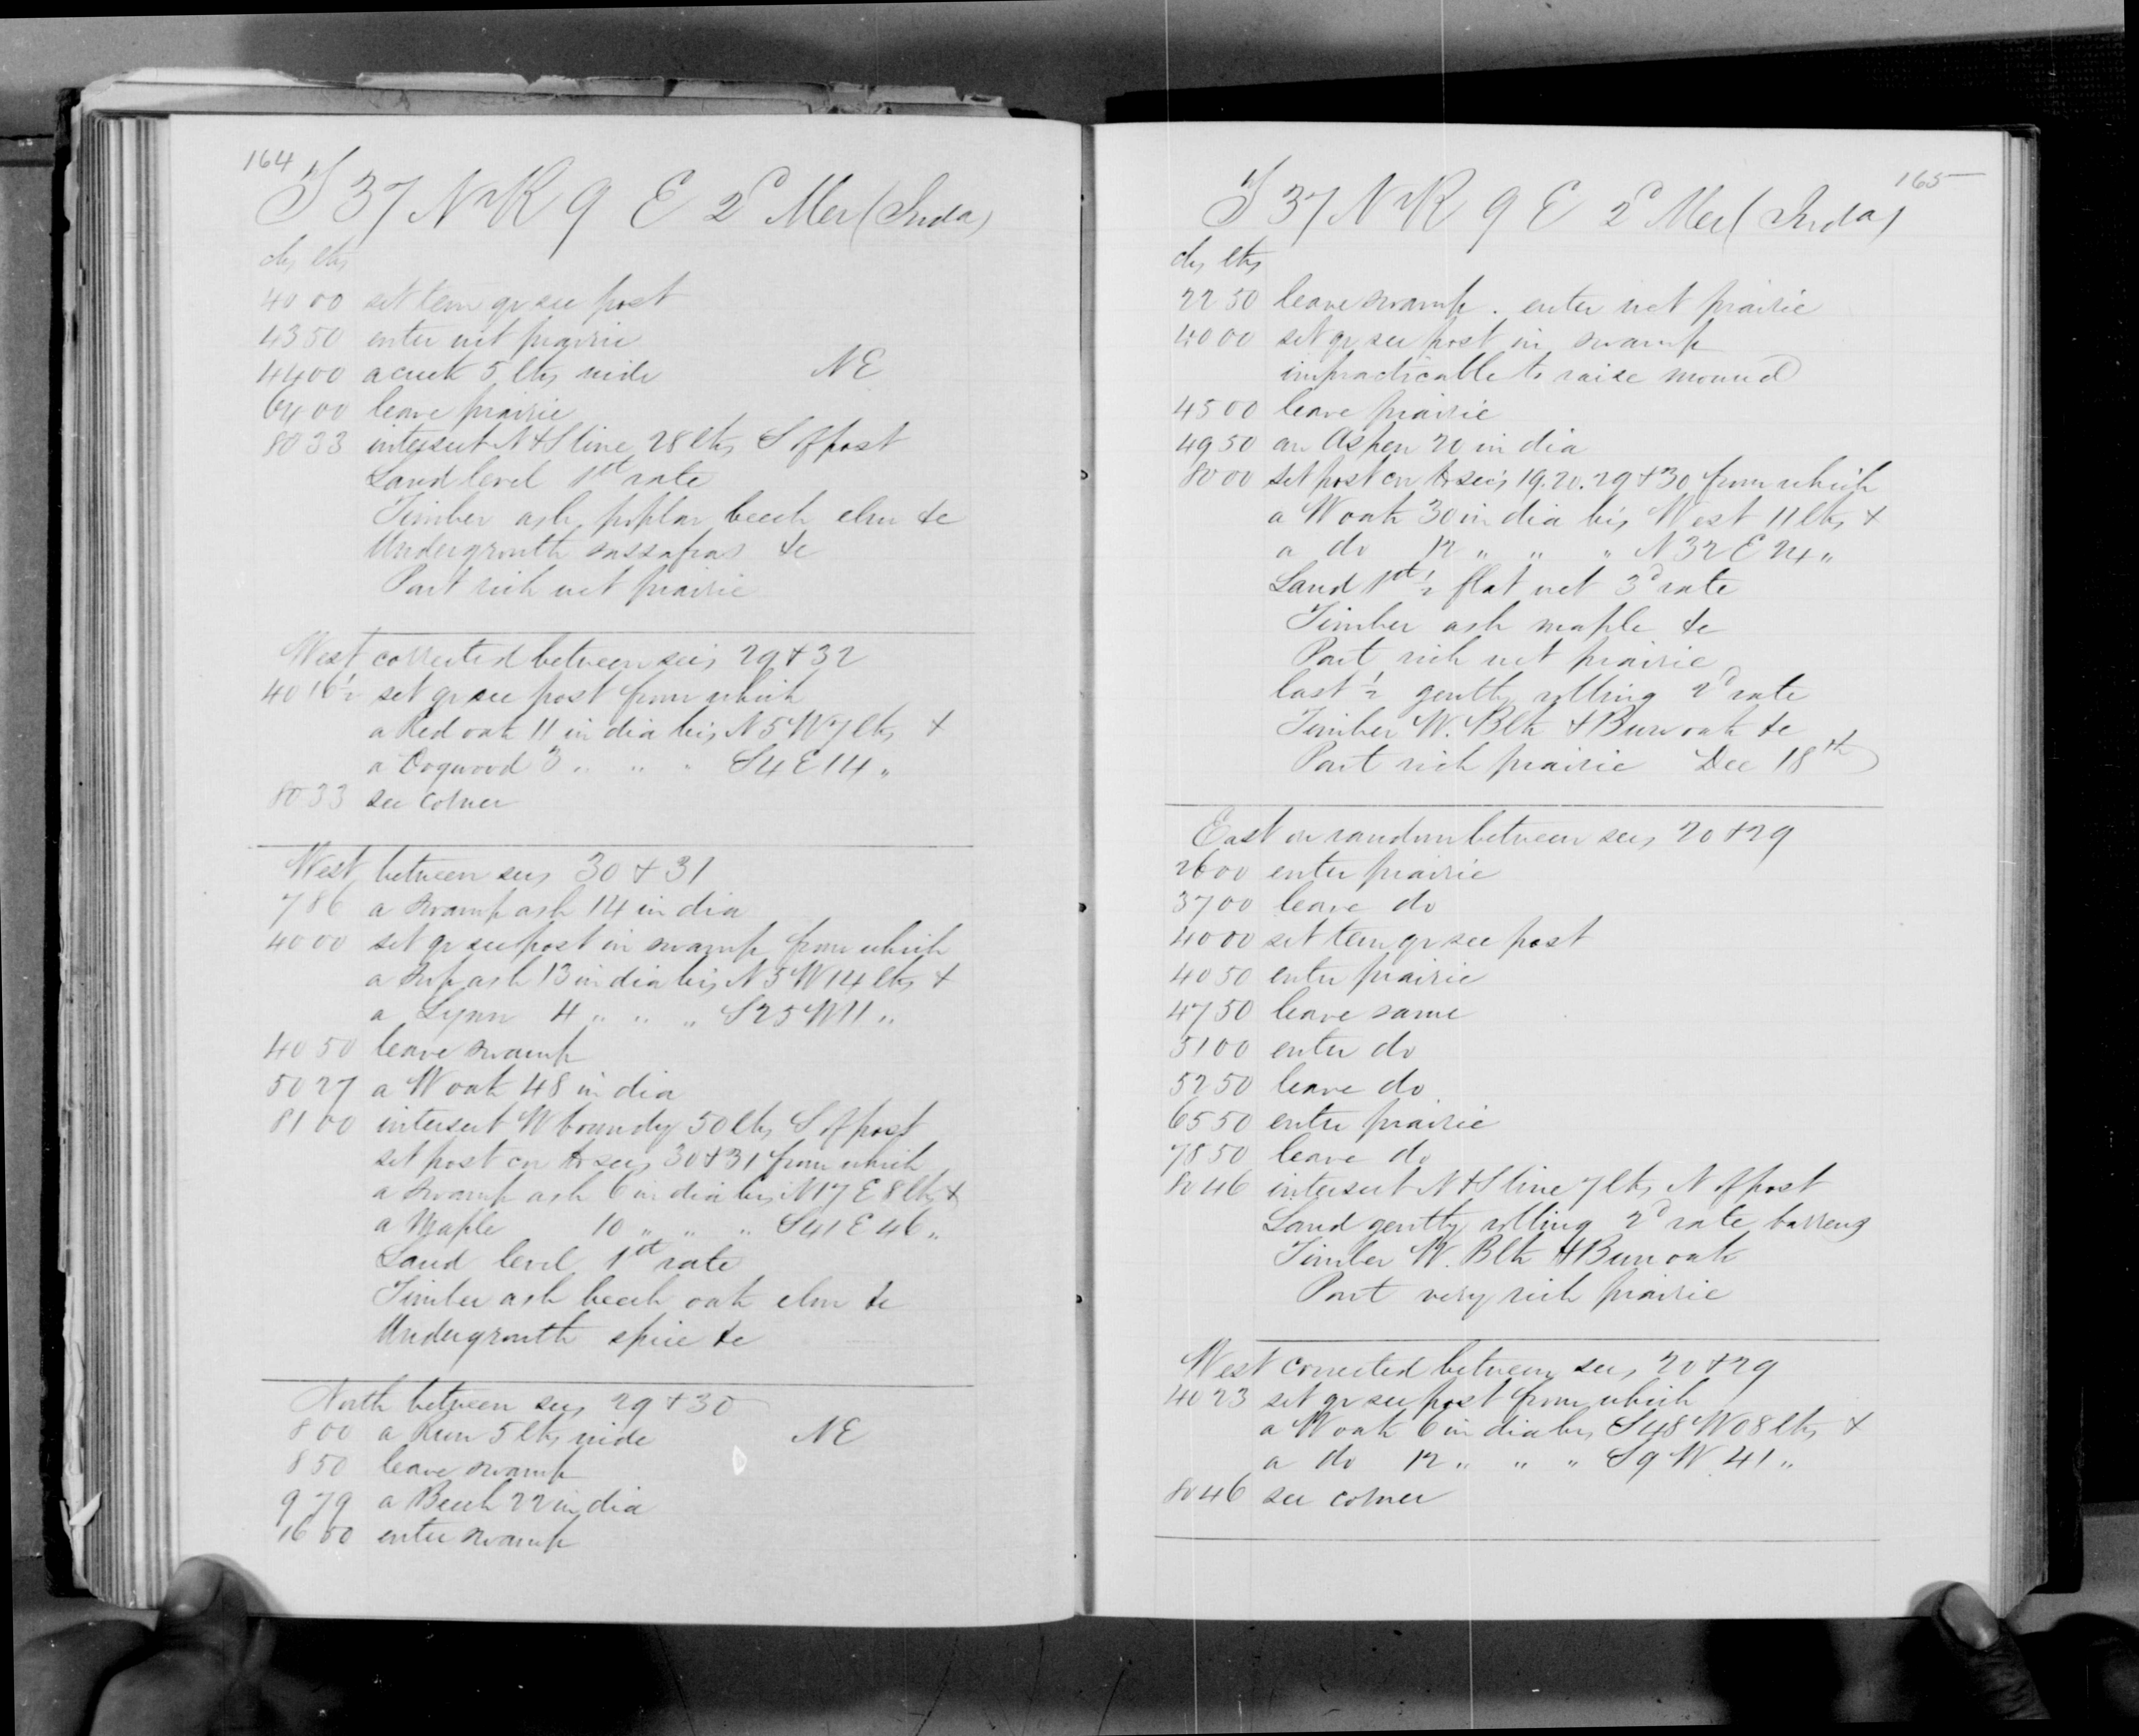 164
T 37 N R 9 E 2d Mer (Inda)
chs lks
40 00 set tem qr sec post
43 50 enter wet prairie
44 00 a creek 5 lks wide NE
64 00 leave prairie
80 33 intersect N & S line 28 lks S of post
Land level 1st rate
Timber ash, poplar beech elm &c
Undergrowth sassafras &c
Part rich wet prairie
West corrected between secs 29 & 32
40 16½ set qr sec post from which
a Red oak 11 in dia brs N 5 W 7 lks &
a Dogwood 3 " " " S 4 E 14 "
80 33 sec corner
West between secs 30 & 31
7 86 a swamp ash 14 in dia
40 00 set qr sec post in swamp from which
a swp ash 13 in dia brs N 5 W 14 lks &
a Lynn 4 " " " S 25 W 11 "
40 50 leave swamp
50 27 a W oak 48 in dia
81 00 intersect W boundy 50 lks S of post
set post cor to secs 30 & 31 from which
a swamp ash 6 in dia brs N 17 E 8 lks &
a Maple 10 " " " S 41 E 46 "
Land level 1st rate
Timber ash beech oak elm &c
Undergrowth spice &c
North between secs 29 & 30
8 00 a Run 5 lks wide NE
8 50 leave swamp
9 79 a Beech 22 in dia
16 00 enter swamp
165
T 37 N R 9 E 2d Mer (Inda)
chs lks
22 50 leave swamp . enter wet prairie
40 00 set qr sec post in swamp
impracticable to raise mound
45 00 leave prairie
49 50 an Aspen 20 in dia
80 00 set post cor to secs 19. 20. 29 & 30 from which
a W oak 30 in dia brs West 11 lks &
a do 12 " " " N 32 E 24 "
Land 1st ½ flat wet 3d rate
Timber ash maple &c
Part rich wet prairie
last ½ gently rolling 2d rate
Timber W. Blk & Burr oak &c
Part rich prairie Dec 18th
East on random between secs 20 & 29
26 00 enter prairie
37 00 leave do
40 00 set tem qr sec post
40 50 enter prairie
47 50 leave same
51 00 enter do
52 50 leave do
65 50 enter prairie
78 50 leave do
80 46 intersect N & S line 7 lks N of post
Land gently rolling 2d rate barrens
Timber W. Blk & Burr oak
Part very rich prairie
West corrected between secs 20 & 29
40 23 set qr sec post from which
a W oak 6 in dia brs S 48 W 08 lks &
a do 12 " " " S 9 W 41 "
80 46 sec corner